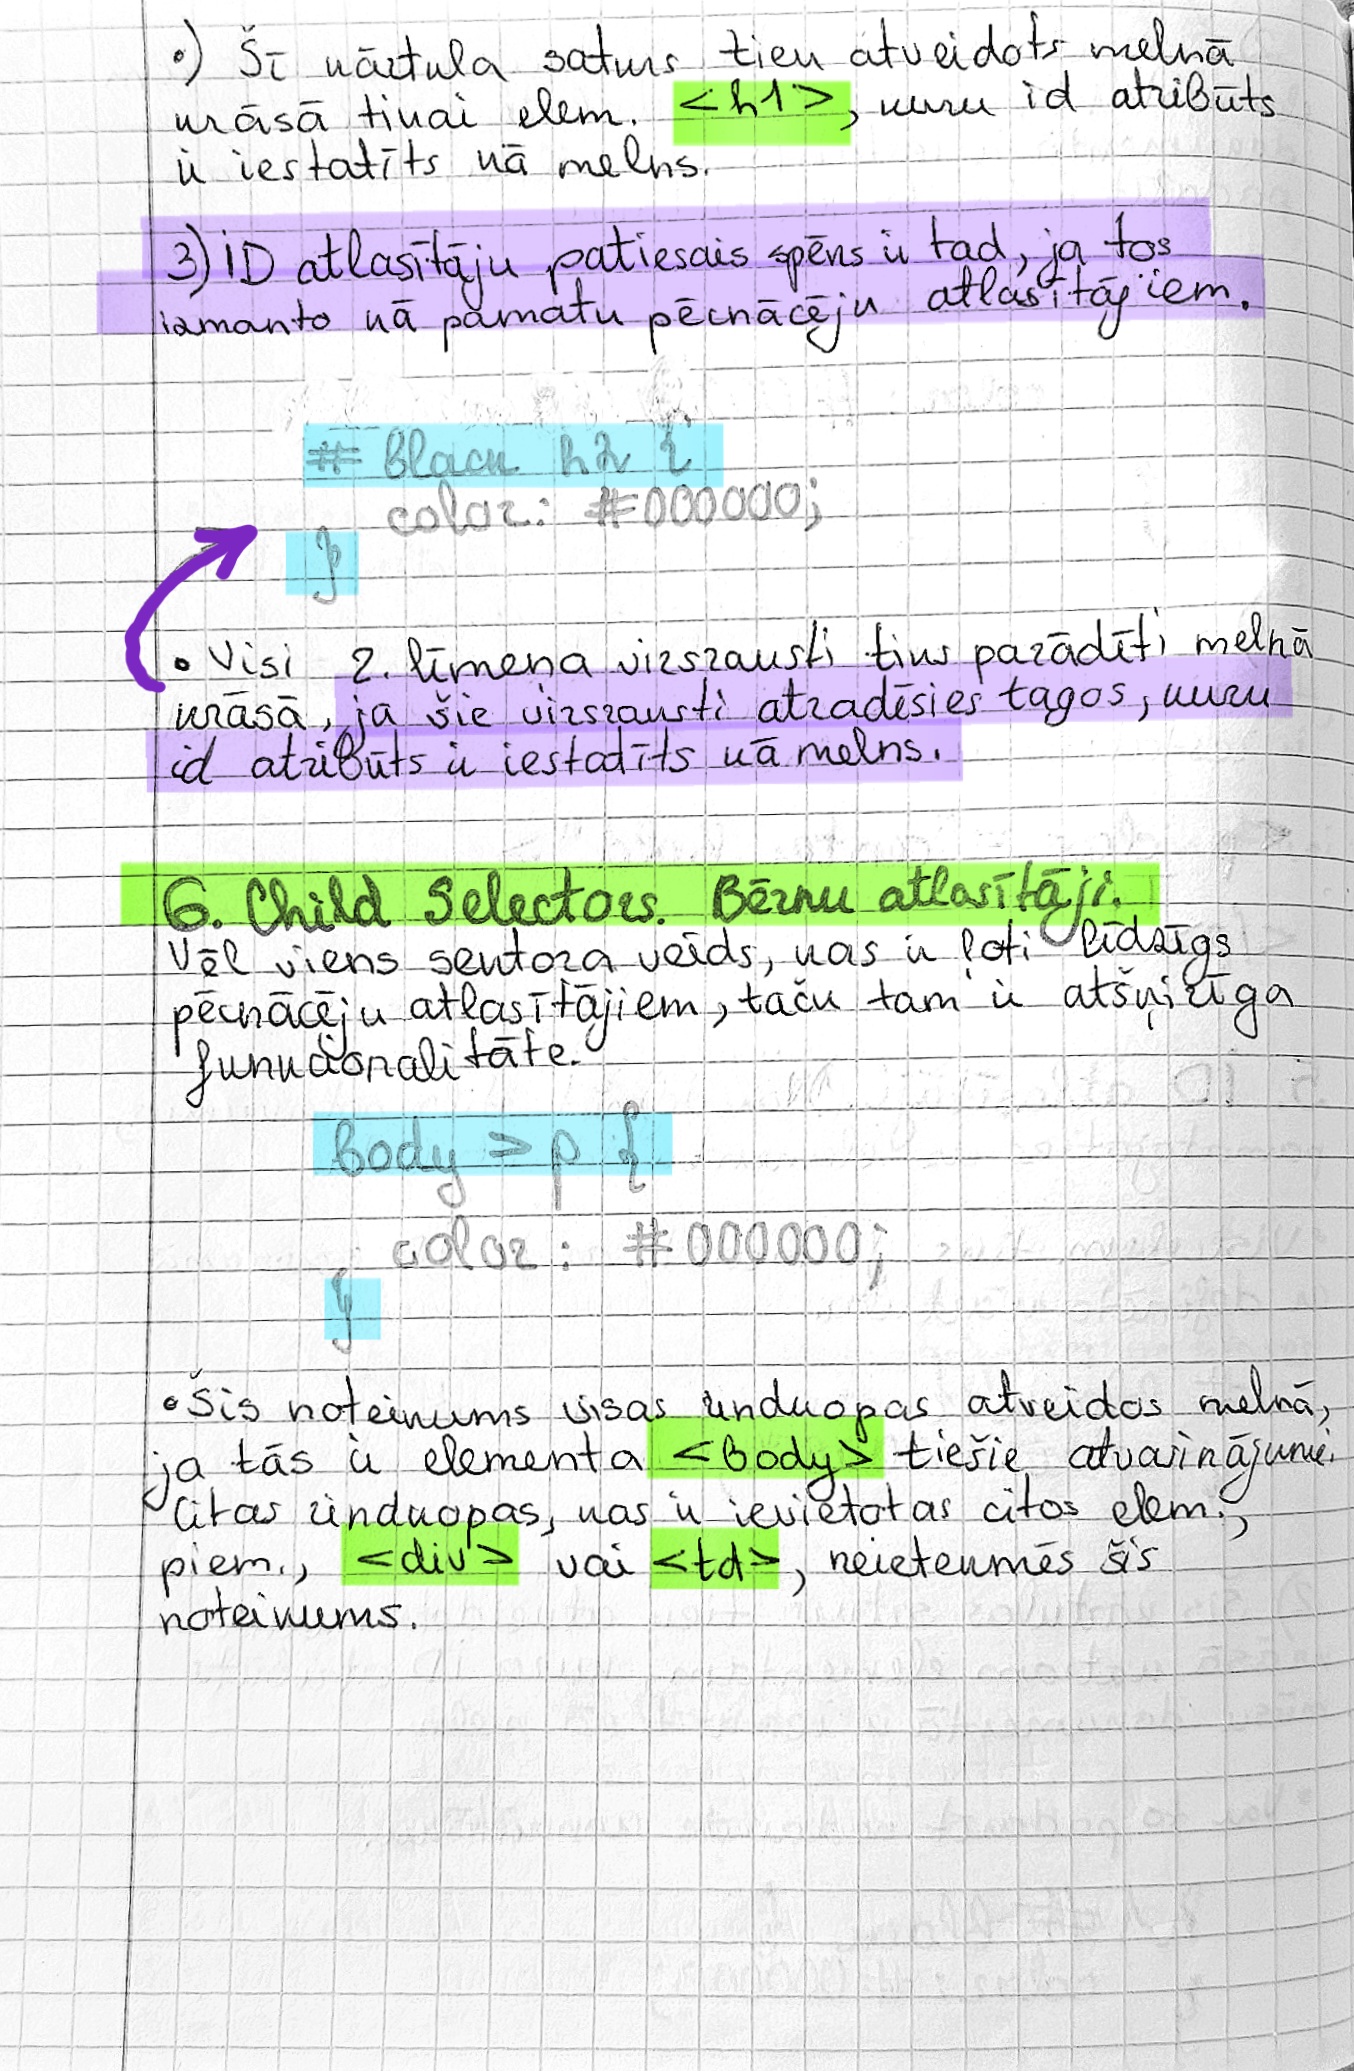 •) Šī kārtula saturs tiek atveidots melnā
krāsā tikai elem. <h1>, kuru id atribūts
ir iestatīts kā melns.
3) ID atlasītāju patiesais spēks ir tad, ja tos
izmanto kā pamatu pēcnācēju atlasītājiem.
# Black h2 {
color: #000000;
}
• Visi 2. līmeņa virsraksti tiks parādīti melnā
krāsā, ja šie virsraksti atradīsies tagos, kuru
id atribūts ir iestatīts kā melns.
6. Child Selectors. Bērnu atlasītāji.
Vēl viens sektora veids, kas ir ļoti līdzīgs
pēcnācēju atlasītājiem, taču tam ir atšķirīga
funkcionalitāte.
body > p {
color: #000000;
}
• Šis noteikums visas rindkopas atveidos melnā,
ja tās ir elementa <body> tiešie atvasinājumi.
Citas rindkopas, kas ir ievietotas citos elem.,
piem., <div> vai <td>, neietekmēs šis
noteikums.